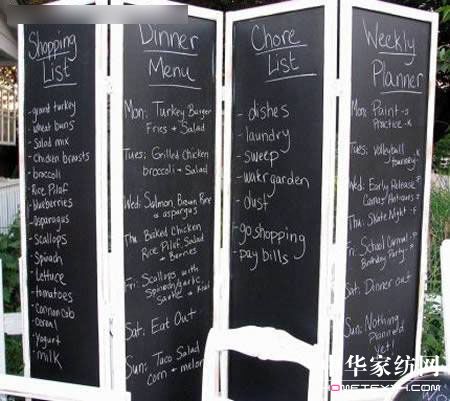 Shopping
List
- ground turkey
- wheat buns
- Salad mix
- Chicken breasts
- broccoli
- Rice Pilaf
- blueberries
- asparagus
- Scallops
- Spinach
- Lettuce
- tomatoes
- corn on cob
- cereal
- yogurt
- milk
Dinner
Menu
Mon: Turkey Burger
Fries + Salad
Tues: Grilled Chicken
broccoli + Salad
Wed: Salmon, Brown Rice
+ asparagus
Thu: Baked Chicken
Rice Pilaf, Salad
+ Berries
Fri: Scallops with
Spinach/garlic
Sat: Eat Out
Sun: Taco Salad
corn + melon
Chore
List
- dishes
- laundry
- sweep
- watr garden
- dust
- go shopping
- pay bills
Weekly
Planner
Mon: Paint
Practice
Tues: volleyball
tourney
Wed: Early Release
Thu: Skate Night
Fri: School Carnival
Birthday Party
Sat: Dinner out
Sun: Nothing
Planned
Yet!
华家纺网